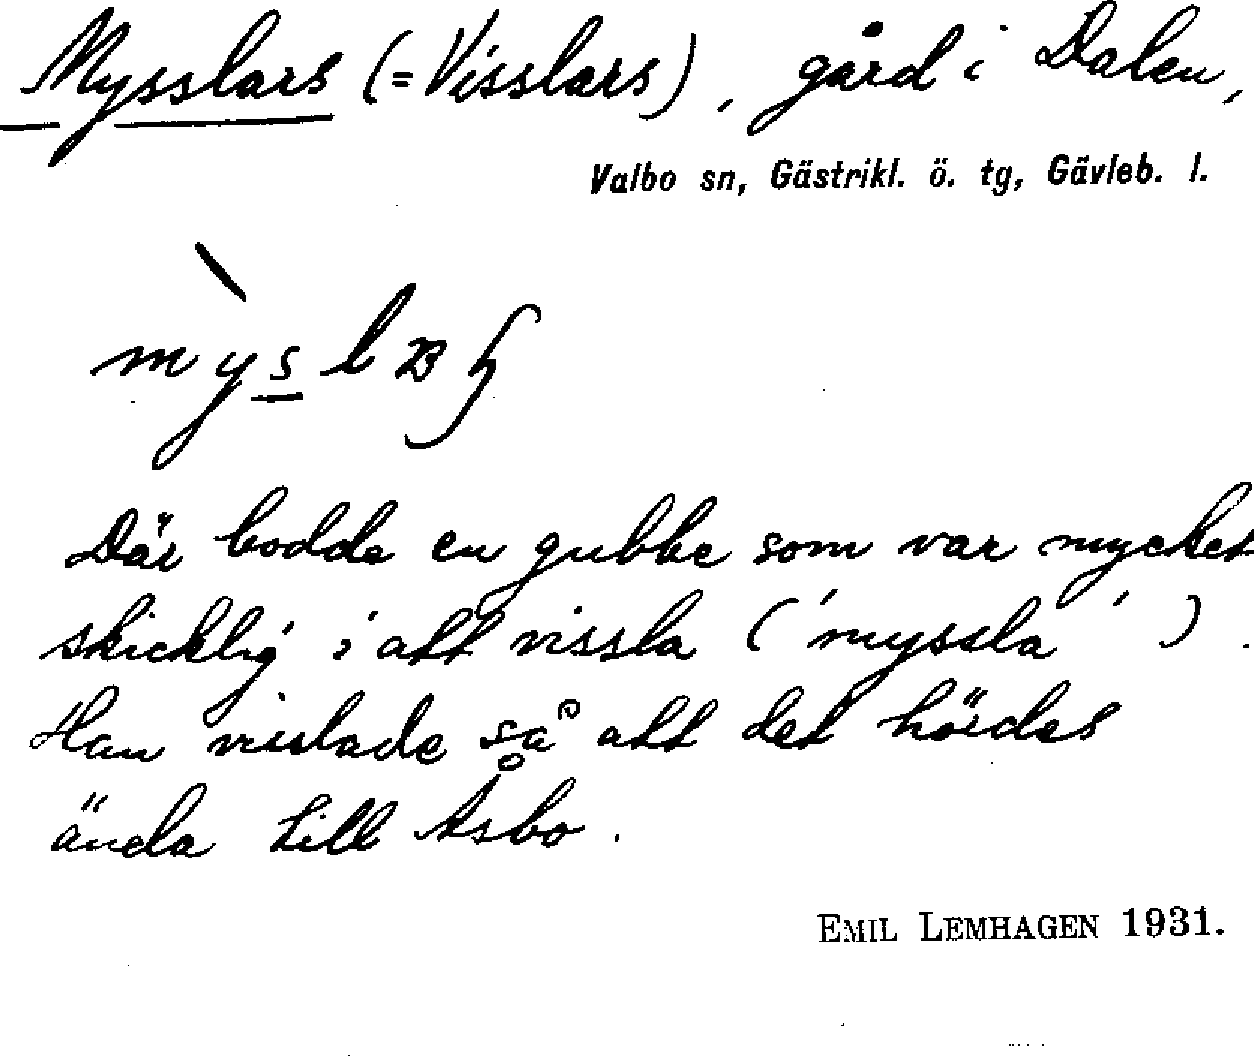 Mysslars (=Visslars), gård i Dalen,
Valbo sn, Gästrikl. ö. tg, Gävleb. l.
Där bodde en gubbe som var mycket
skicklig i att vissla ('myssla').
Han visslade så att det hördes
ända till Åsbo.
EMIL LEMHAGEN 1931.